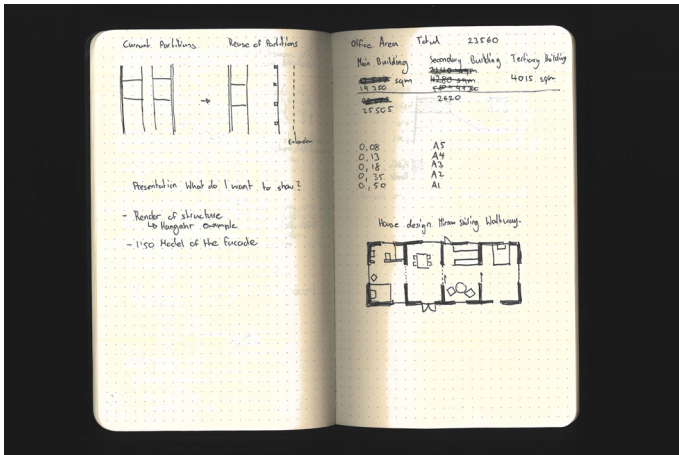 Current Partitions
Reuse of Partitions
Extension
Presentation What do I want to show?
- Render of structure
↳ Hangahr example
- 1:50 Model of the facade
Office Area Total 23560
Main Building
Secondary Building
Tertiary Building
sqm
4280 sqm
4015 sqm
19 350
2620
25 505
0,08 A5
0,13 A4
0,18 A3
0,35 A2
0,50 A1
House design. Mirror sliding Walkway.